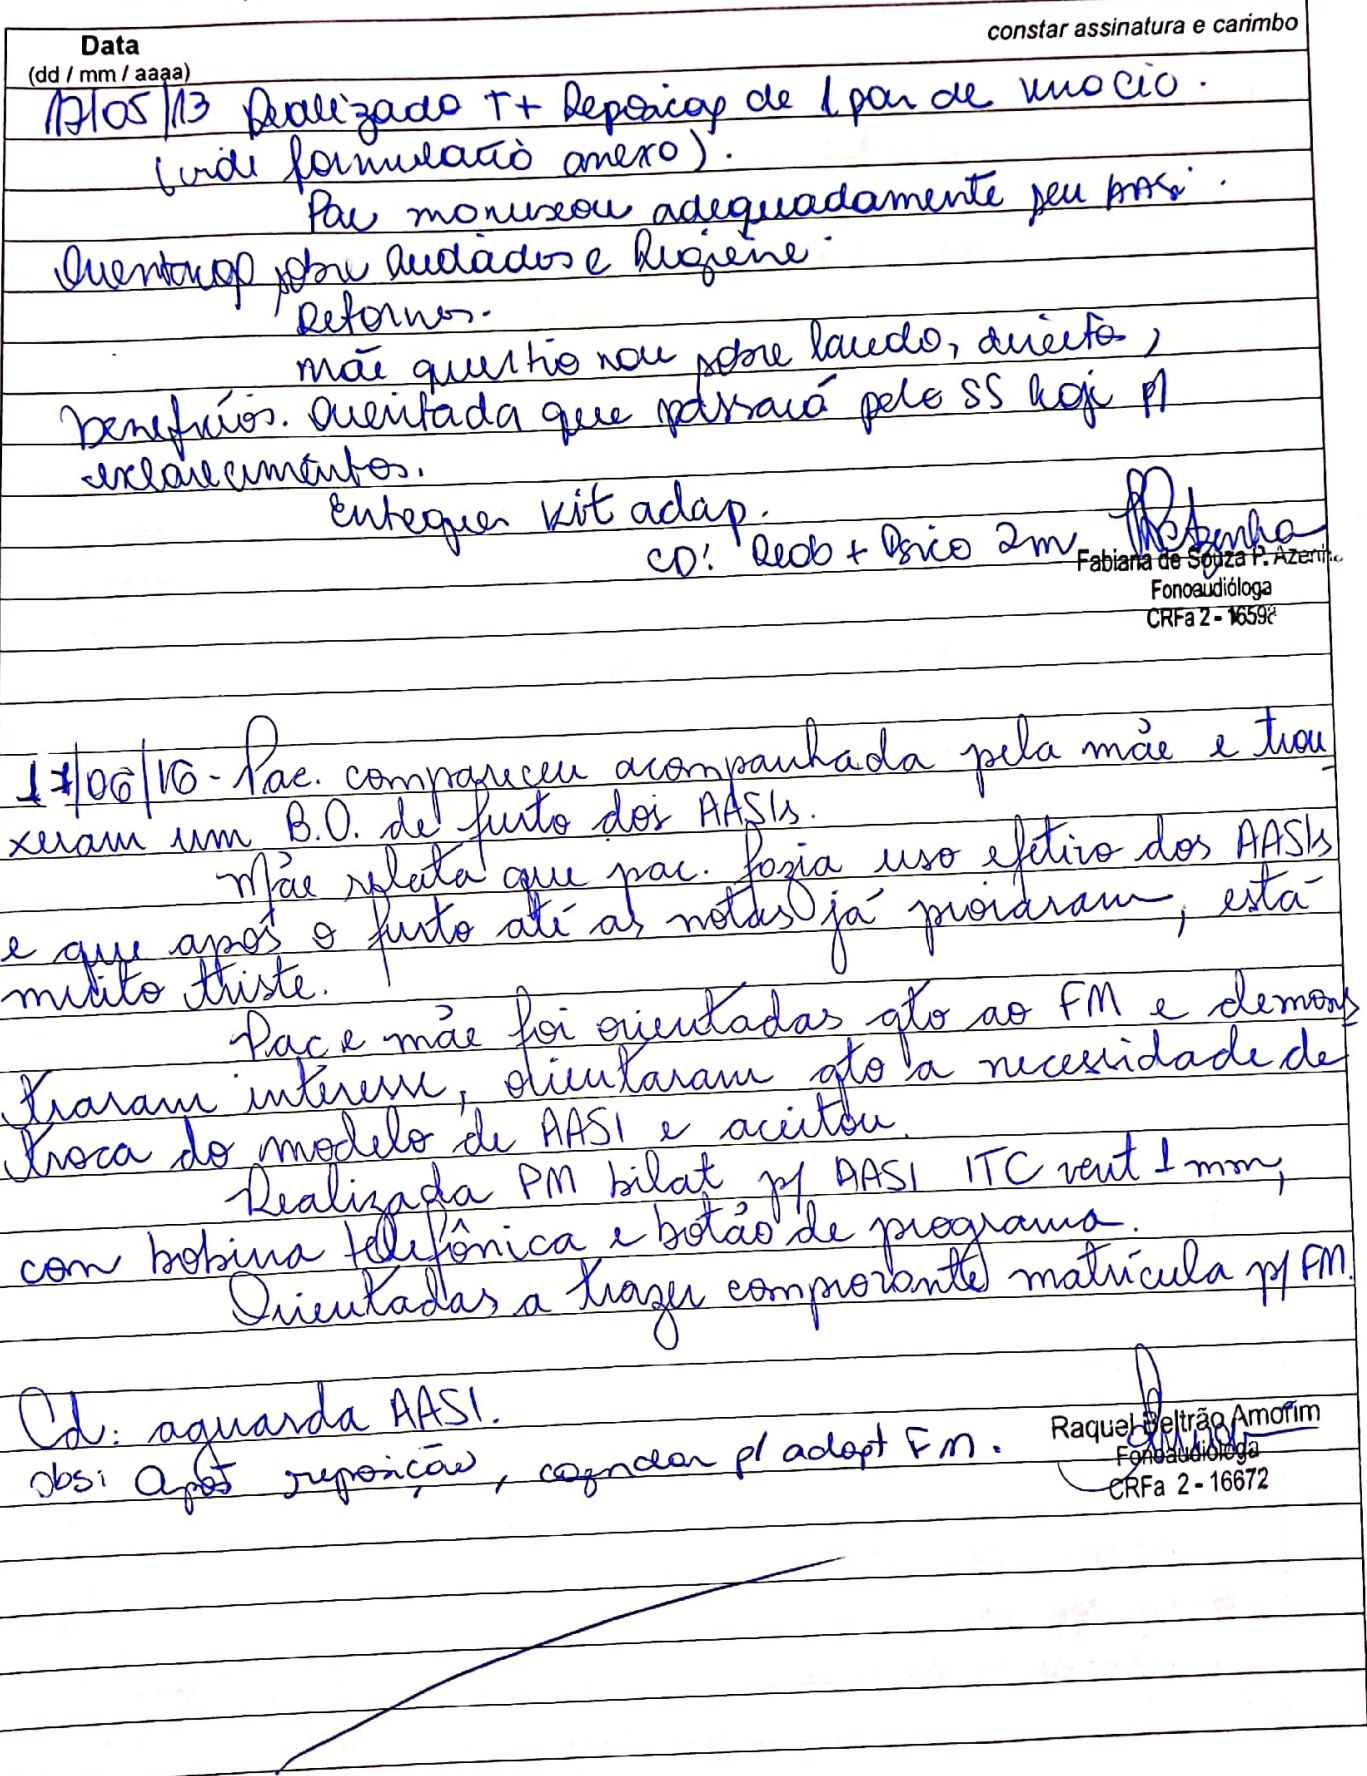 constar assinatura e carimbo
Data
(dd / mm / aaaa)
17/05/13 Realizado T+ Reposição de 1 par de
(vide formulário anexo).
Pac manuseou adequadamente seu AASI.
Orientação sobre cuidados e higiene.
Retornos.
mãe questionou sobre laudo, direitos,
benefícios. Orientada que passará pelo SS hoje p/
esclarecimentos.
Entregues kit adap.
CD: Reab + Psico 2m
Fabiana de Souza P. Azenha
Fonoaudióloga
CRFa 2 - 16592
17/06/16 - Pac. compareceu acompanhada pela mãe e trou-
xeram um B.O. de furto dos AASIs.
Mãe relata que pac. fazia uso efetivo dos AASIs
e que após o furto até as notas já pioraram, está
muito triste.
Pac e mãe foi orientadas qto ao FM e demons
traram interesse, orientaram qto a necessidade de
troca do modelo de AASI e aceitou.
Realizada PM bilat p/ AASI ITC vent 1 mm,
com bobina telefônica e botão de programa.
Orientadas a trazer comprovante matrícula p/ FM.
Cd: aguarda AASI.
obs: Após reposição, agendar p/ adapt FM.
Raquel Beltrão Amorim
Fonoaudióloga
CRFa 2 - 16672